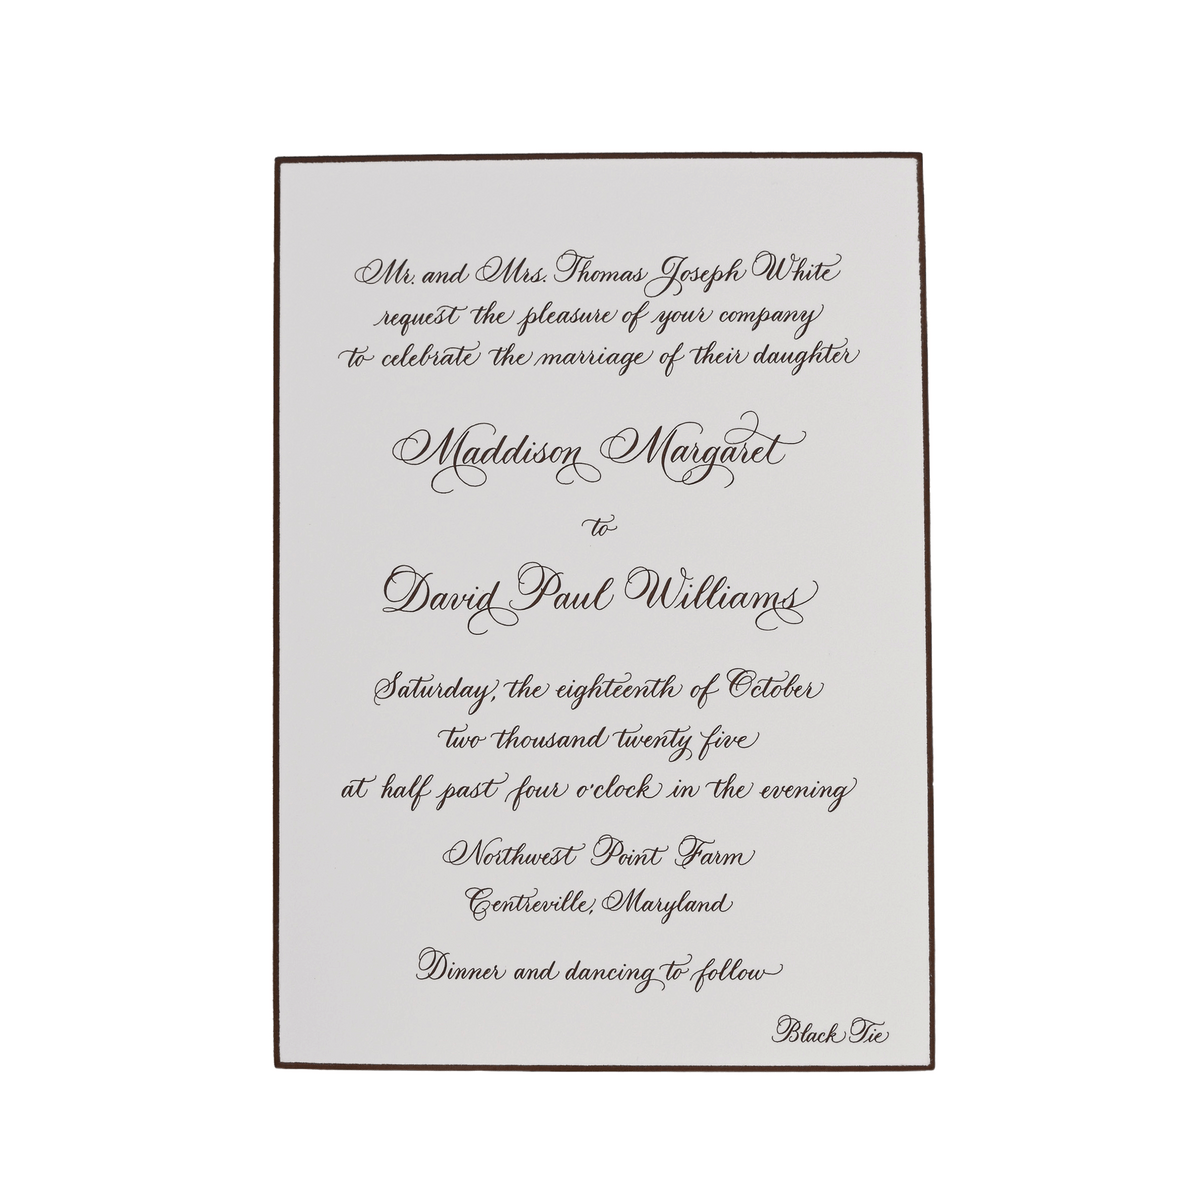 Mr. and Mrs. Thomas Joseph White
request the pleasure of your company
to celebrate the marriage of their daughter
Maddison Margaret
to
David Paul Williams
Saturday, the eighteenth of October
two thousand twenty five
at half past four o'clock in the evening
Northwest Point Farm
Centreville, Maryland
Dinner and dancing to follow
Black Tie